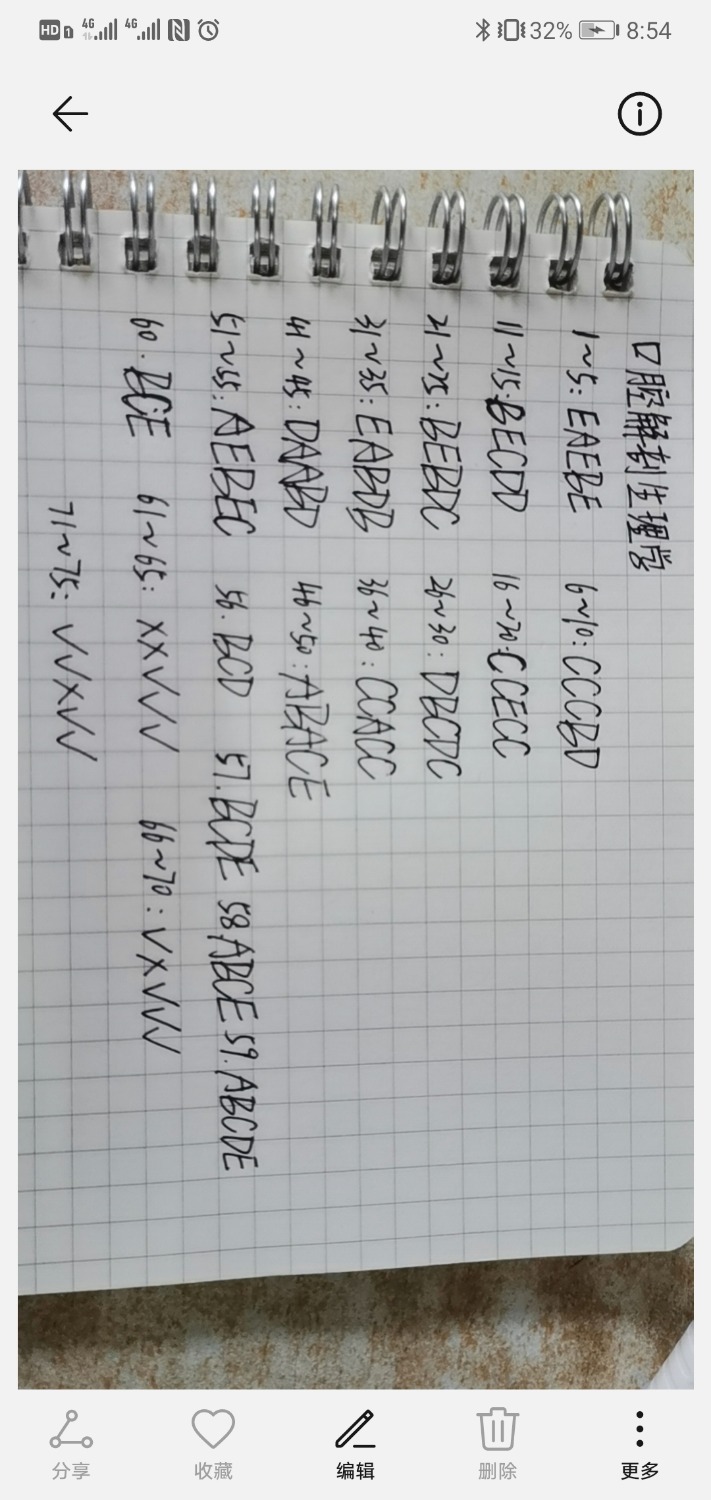 HD 1 4G 4G 32% 8:54
口腔解剖生理学
1~5: EAEBE 6~10: CCCBD
11~15: BECDD 16~20: CCECC
21~25: BEBDC 26~30: DBCDC
31~35: EABDB 36~40: CCACC
41~45: DAABD 46~50: ABACE
51~55: AEBEC 56. BCD 57. BCDE 58. ABCE 59. ABCDE
60. BCE 61~65: XX√√√ 66~70: √X√√√
71~75: √√X√√
分享 收藏 编辑 删除 更多